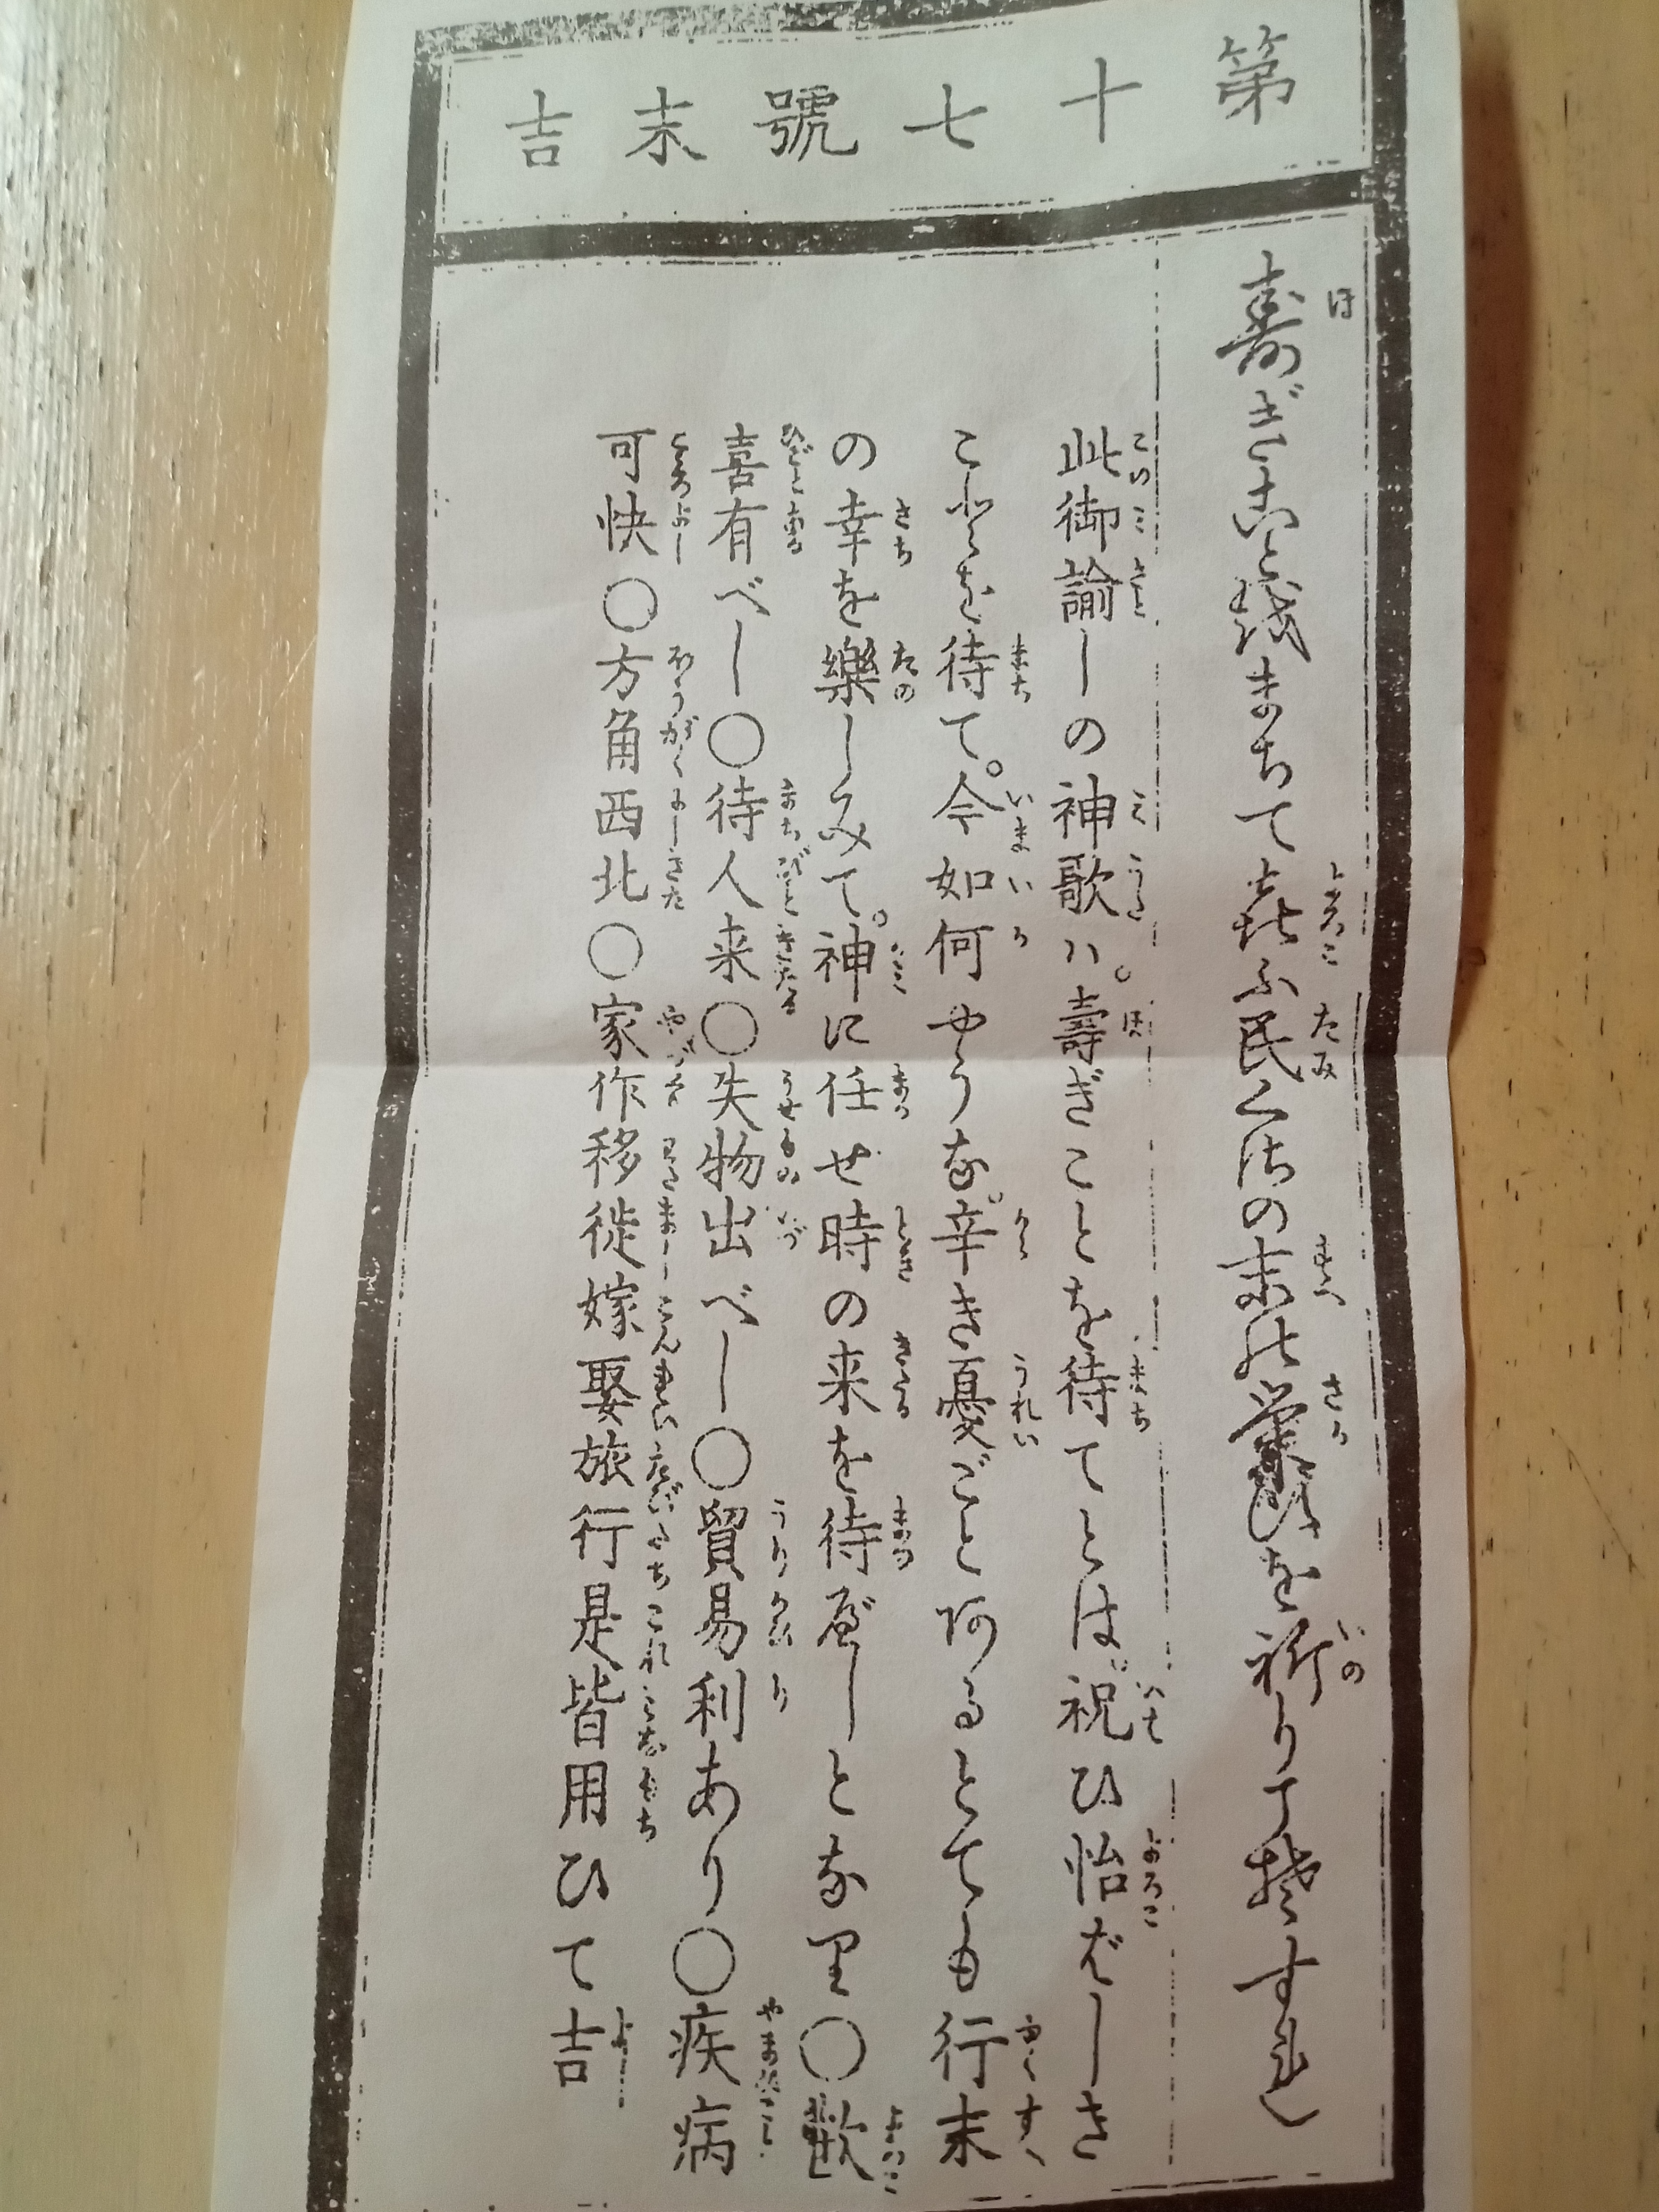 第十七號末吉
寿ぎこと越まちて㐂ふ民くさの末の榮を祈りて
此御諭しの神歌ハ。壽ぎことを待てとは。祝ひ怡ばしき
これを待て。今如何やうな。辛き憂ごと阿るとても行末
の幸を樂しみて。神に任せ時の来を待べしとな里〇歡
喜有べし〇待人来〇失物出べし〇貿易利あり〇疾病
可快〇方角西北〇家作移徙嫁娶旅行是皆用ひて吉